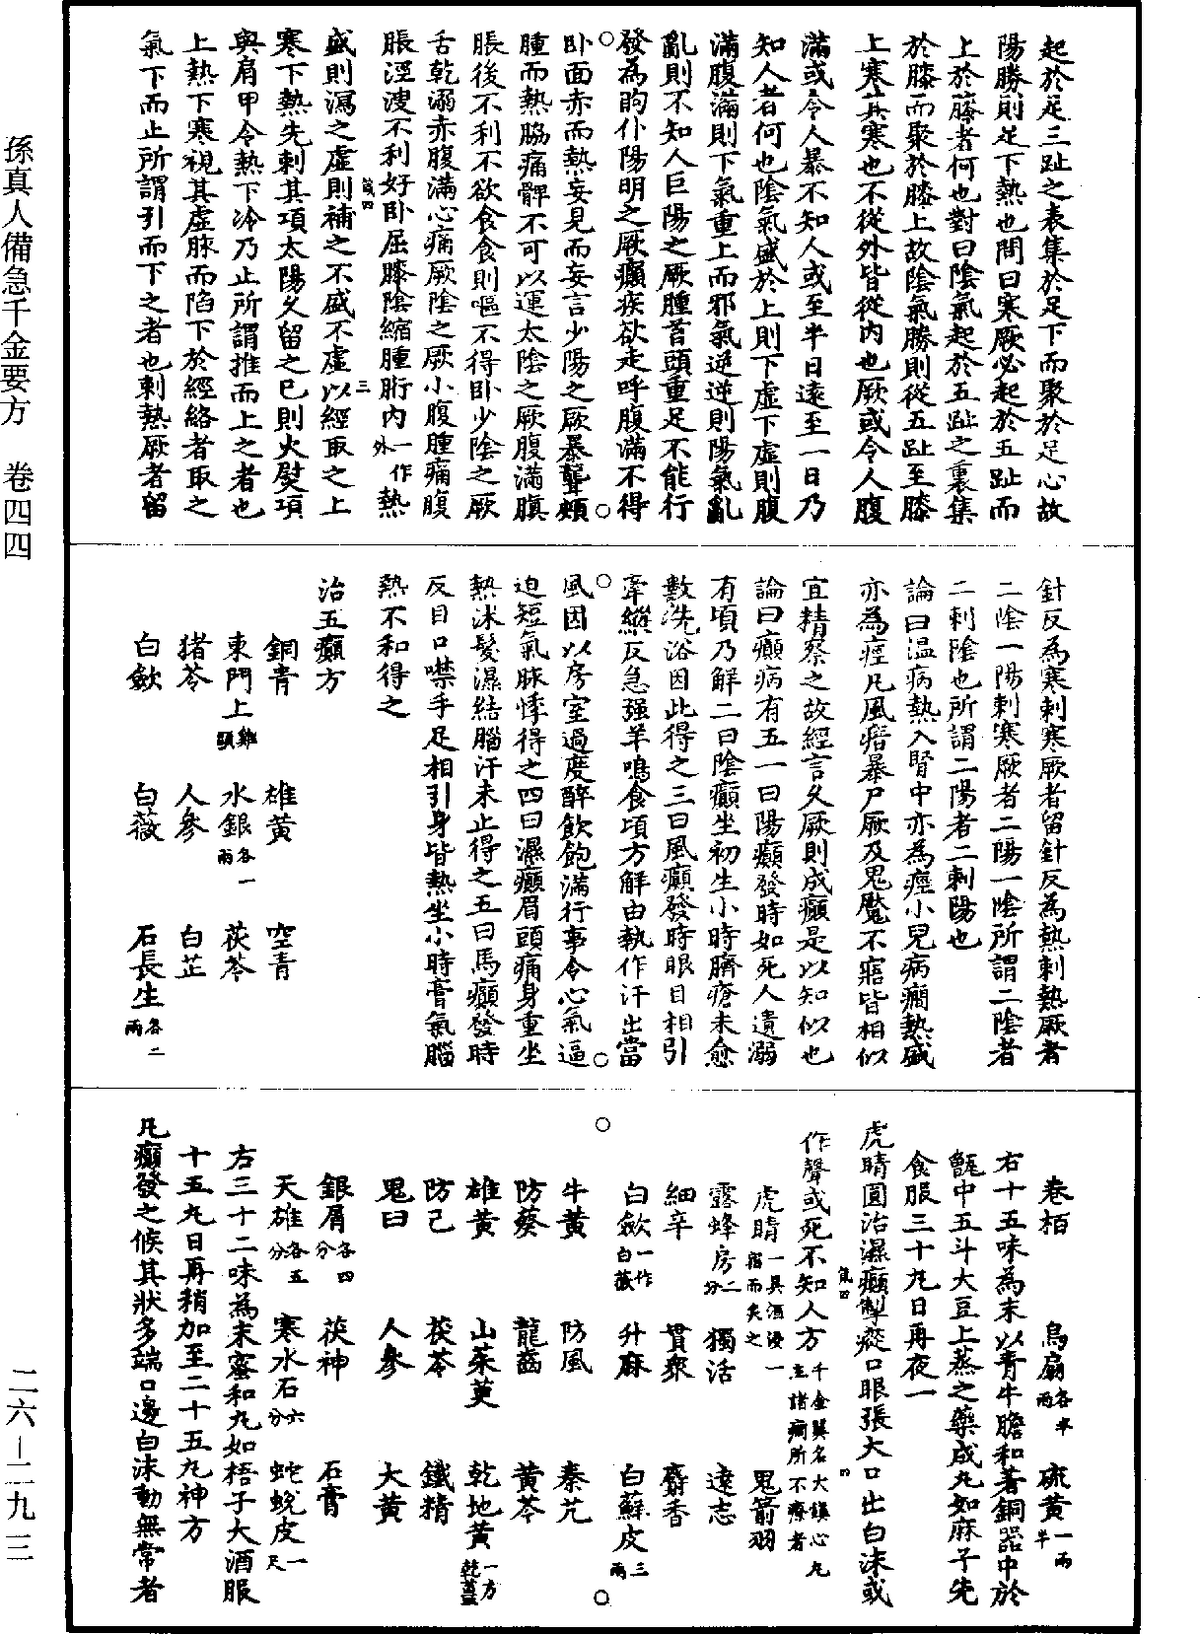 孫真人備急千金要方　卷四四
二六—二九三
起於足三趾之表集於足下而聚於足心故
陽勝則足下熱也問曰寒厥必起於五趾而
上於藤者何也對曰陰氣起於五趾之裏集
於膝而聚於膝上故陰氣勝則從五趾至膝
上寒其寒也不從外皆從內也厥或令人腹
滿或令人暴不知人或至半日遠至一日乃
知人者何也陰氣盛於上則下虛下虛則腹
滿腹滿則下氣重上而邪氣逆逆則陽氣亂
亂則不知人巨陽之厥腫首頭重足不能行
發為眴仆陽明之厥癲疾欲走呼腹滿不得
臥面赤而熱妄見而妄言少陽之厥暴聾頰
腫而熱脇痛髀不可以運太陰之厥腹滿䐜
脹後不利不欲食食則嘔不得臥少陰之厥
舌乾溺赤腹滿心痛厥陰之厥小腹腫痛腹
脹涇溲不利好臥屈膝陰縮腫胻內一作外熱
盛則瀉之虛則補之不盛不虛以經取之上
寒下熱先刺其項太陽久留之已則火熨項
與肩甲令熱下冷乃止所謂推而上之者也
上熱下寒視其虛脉而陷下於經絡者取之
氣下而止所謂引而下之者也刺熱厥者留
針反為寒刺寒厥者留針反為熱刺熱厥者
二陰一陽刺寒厥者二陽一陰所謂二陰者
二刺陰也所謂二陽者二刺陽也
論曰温病熱入腎中亦為痙小兒病癎熱盛
亦為痙凡風瘖暴尸厥及鬼魘不寤皆相似
宜精察之故經言久厥則成癲是以知似也
論曰癲病有五一曰陽癲發時如死人遺溺
有頃乃解二曰陰癲坐初生小時臍瘡未愈
數洗浴因此得之三曰風癲發時眼目相引
牽縱反急强羊鳴食頃方解由執作汗出當
風因以房室過度醉飲飽滿行事令心氣逼
迫短氣脉悸得之四曰濕癲眉頭痛身重坐
熱沐髮濕結腦汗未止得之五曰馬癲發時
反目口噤手足相引身皆熱坐小時膏氣腦
熱不和得之
治五癲方
銅青　雄黃　空青
東門上雞頭　水銀各一兩　茯苓
猪苓　人參　白芷
白歛　白薇　石長生各二兩
卷栢　烏扇各半兩　硫黃一兩半
右十五味為末以青牛膽和著銅器中於
甑中五斗大豆上蒸之藥成丸如麻子先
食服三十丸日再夜一
虎睛圓治濕癲掣瘲口眼張大口出白沫或
作聲或死不知人方千金翼名大鎮心丸主諸癎所不療者
虎睛一具酒浸一宿而炙之　鬼箭羽
露蜂房二分　獨活　遠志
細辛　貫衆　麝香
白歛一作白薇　升麻　白蘇皮三兩
牛黃　防風　秦艽
防葵　龍齒　黃芩
雄黃　山茱萸　乾地黃一方乾薑
防己　茯苓　鐵精
鬼臼　人參　大黃
銀屑各四分　茯神　石膏
天雄各五分　寒水石六分　蛇蛻皮一尺
右三十二味為末蜜和丸如梧子大酒服
十五丸日再稍加至二十五丸神方
凡癲發之候其狀多端口邊白沫動無常者